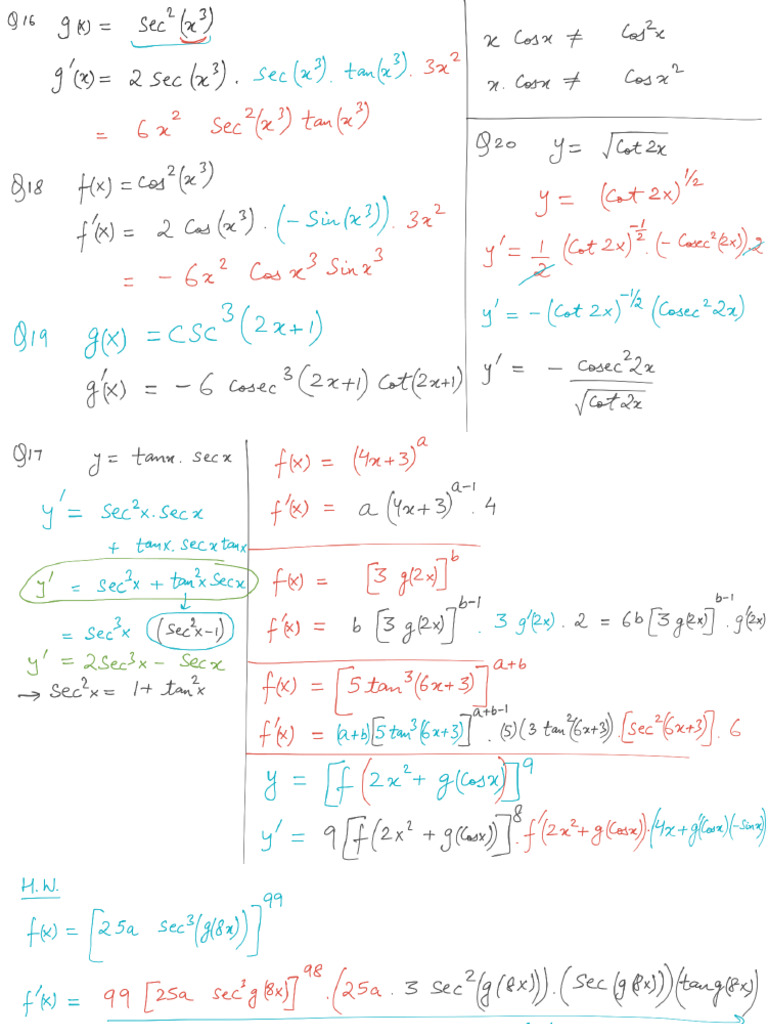 Q16 g(x) = sec²(x³)
g'(x) = 2 sec(x³) . sec(x³). tan(x³). 3x²
= 6x² sec²(x³) tan(x³)
Q18 f(x) = cos²(x³)
f'(x) = 2 Cos(x³) . (-Sin(x³)). 3x²
= - 6x² Cosx³ Sinx³
Q19 g(x) = csc³(2x+1)
g'(x) = -6 cosec³(2x+1) Cot(2x+1)
x Cosx ≠ Cos²x
x. Cosx ≠ Cosx²
Q20 y = √Cot2x
y = (Cot 2x)^1/2
y' = 1/2 (Cot 2x)^-1/2 . (-Cosec²(2x)).2
y' = -(Cot 2x)^-1/2 (Cosec² 2x)
y' = - cosec²2x / √cot2x
Q17 y = tanx. secx
y' = sec²x. secx
+ tanx. secx tanx
y' = sec³x + tan²x Secx
= sec³x (sec²x-1)
y' = 2sec³x - secx
→ sec²x = 1+ tan²x
f(x) = (4x+3)^a
f'(x) = a (4x+3)^a-1 . 4
f(x) = [3 g(2x)]^b
f'(x) = b [3 g(2x)]^b-1 . 3 g'(2x) . 2 = 6b [3 g(2x)]^b-1 . g'(2x)
f(x) = [5 tan³(6x+3)]^a+b
f'(x) = (a+b)[5 tan³(6x+3)]^a+b-1 . (5)(3 tan²(6x+3)).[sec²(6x+3)]. 6
y = [f(2x² + g(Cosx)]^9
y' = 9 [f(2x² + g(Cosx))]^8 . f'(2x² + g(Cosx)).(4x + g'(Cosx)(-Sinx)
H.W.
f(x) = [25a sec³(g(8x))]^99
f'(x) = 99 [25a sec³g(8x)]^98 .(25a . 3 sec²(g(8x)).(sec(g(8x))(tan g(8x))